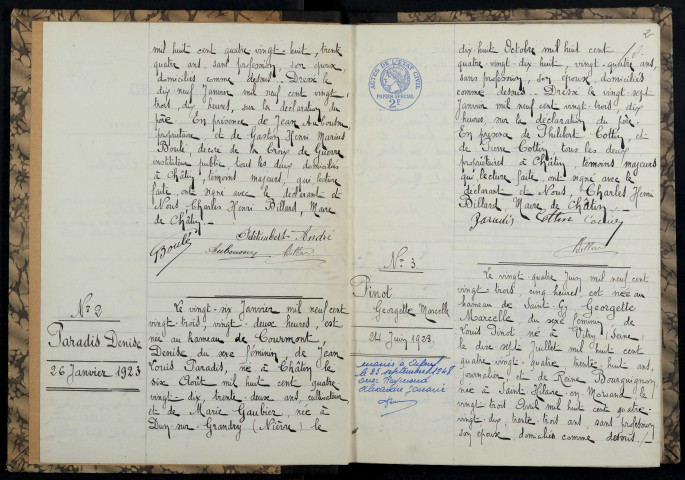 mil huit cent quatre-vingt-huit, trente
quatre ans, sans profession, son époux,
domiciliés comme dessus. Dressé le
dix neuf Janvier mil neuf cent vingt
trois, dix heures, sur la déclaration du
père. En présence de Jean
propriétaire, et de Gaston Henri Marius
Boulé, décoré de la Croix de Guerre
instituteur public, tous les deux domiciliés
à Châtin, témoins majeurs, qui, lecture
faite ont signé avec le déclarant et
Nous Charles Henri Billard, Maire
de Châtin.
André
Boulé
Billard
N° 2
Paradis Denise
26 Janvier 1923
Le vingt-six Janvier mil neuf cent
vingt-trois, vingt-deux heures, est
née au hameau de Courmont,
Denise du sexe féminin de Jean
Louis Paradis, né à Châtin le
six Août mil huit cent quatre
vingt dix, trente-deux ans, cultivateur
et de Marie Gaubier, née à
Dun-sur-Grandry (Nièvre) le
2
ACTES DE L'ÉTAT CIVIL
PAPIER SPÉCIAL
2E
dix-huit Octobre mil huit cent
quatre-vingt-dix-huit, vingt-quatre ans,
sans profession, son époux, domiciliés
comme dessus. Dressé le vingt-sept
Janvier mil neuf cent vingt trois dix
heures, sur la déclaration du père.
En présence de Philibert Cottin, et
de Pierre Cottin, tous les deux
propriétaires à Châtin, témoins majeurs
qui lecture faite ont signé avec le
déclarant et Nous, Charles Henri
Billard Maire de Châtin.
Paradis Cottin
Billard
N° 3
Pinot
Georgette Marcelle
24 Juin 1923
mariée à
le 25 septembre 1948
avec Raymond
Le vingt-quatre Juin mil neuf cent
vingt trois cinq heures, est née au
hameau de Saint-Gy, Georgette
Marcelle du sexe féminin de
Louis Pinot né à Vitry (Seine)
le dix sept Juillet mil huit cent
quatre vingt-quatre trente huit ans,
journalier, et de Reine Bourguignon
née à Saint Hilaire-en-Morvand le
vingt trois Avril mil huit cent quatre
vingt-dix, trente trois ans, sans profession
son époux, domiciliés comme dessus./-